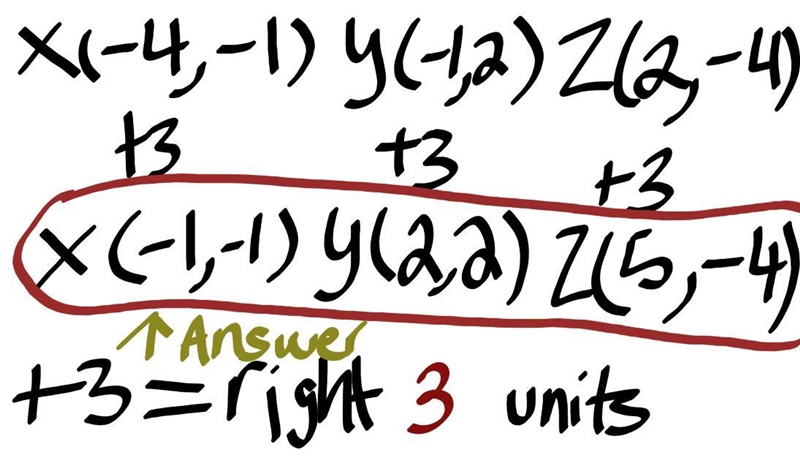 X(-4,-1) y(-1,2) Z(2,-4)
+3 +3 +3
X(-1,-1) y(2,2) Z(5,-4)
↑ Answer
+3=right 3 units